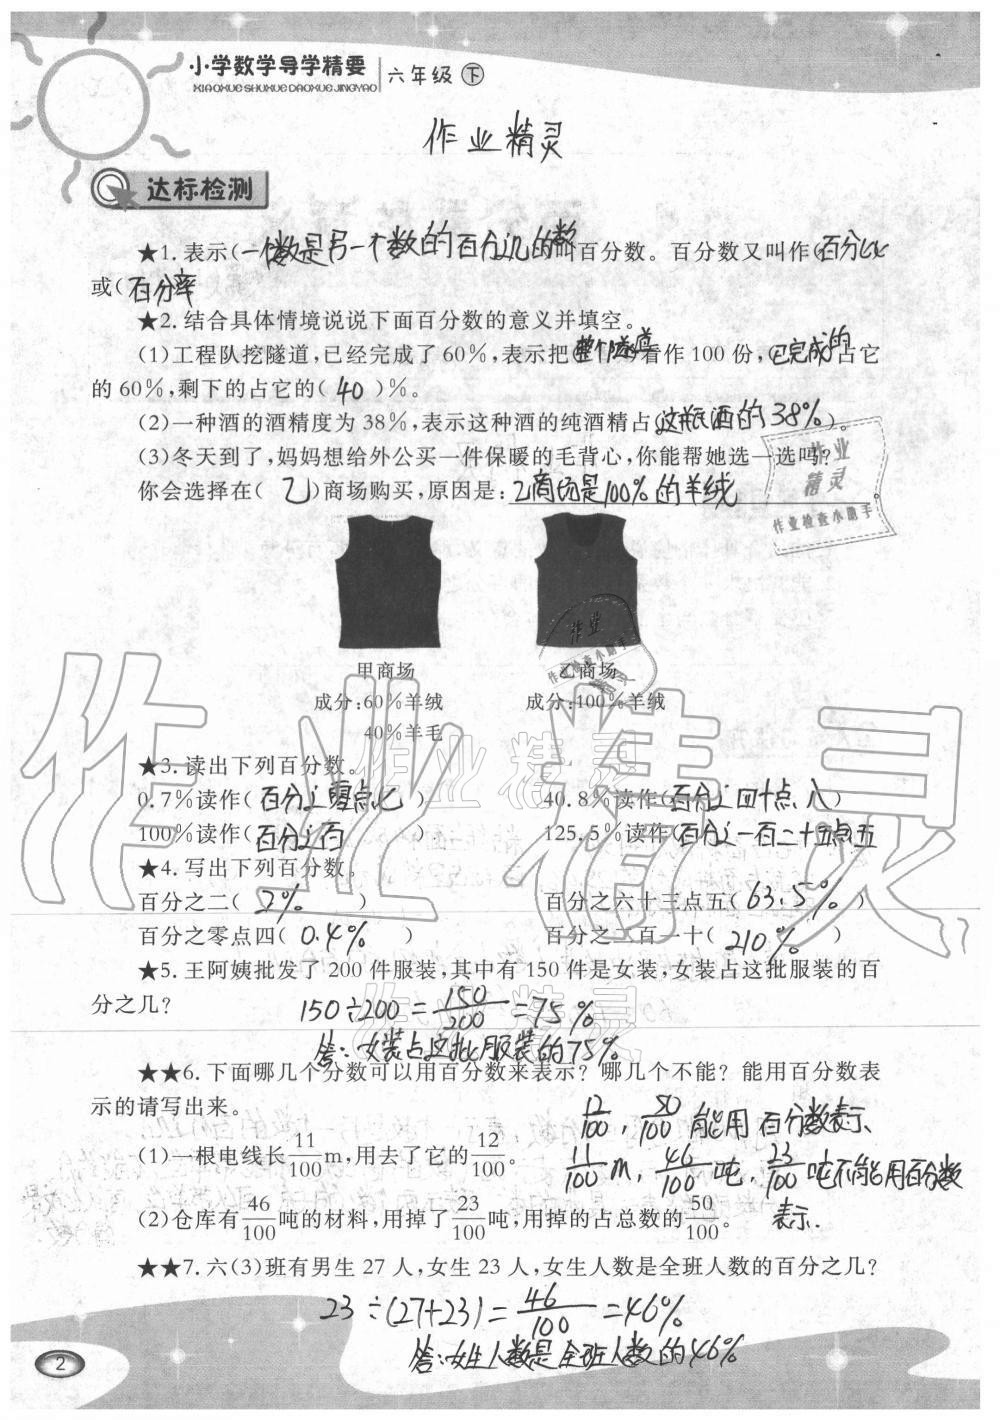 小学数学导学精要
XIAOXUE SHUXUE DAOXUE JINGYAO
六年级 下
作业精灵
达标检测
★1.表示(一个数是另一个数的百分之几的数叫百分数。百分数又叫作(百分比
或(百分率
★2.结合具体情境说说下面百分数的意义并填空。
(1)工程队挖隧道,已经完成了60%,表示把(整个隧道)看作100份,(已完成的占它
的60%,剩下的占它的( 40 )%。
(2)一种酒的酒精度为38%,表示这种酒的纯酒精占(这瓶酒的38%)。
(3)冬天到了,妈妈想给外公买一件保暖的毛背心,你能帮她选一选吗?
你会选择在( 乙 )商场购买,原因是:乙商场是100%的羊绒
作业
精灵
作业检查小助手
作业
作业检查小助手
精灵
甲商场 乙商场
成分:60%羊绒 成分:100%羊绒
40%羊毛
作业精灵
作业精灵
★3.读出下列百分数。
0.7%读作(百分之零点七 ) 40.8%读作(百分之四十点八)
100%读作(百分之百 ) 125.5%读作(百分之一百二十五点五
★4.写出下列百分数。
百分之二( 2% ) 百分之六十三点五( 63.5% )
百分之零点四( 0.4% ) 百分之二百一十( 210% )
★5.王阿姨批发了200件服装,其中有150件是女装,女装占这批服装的百
分之几? 150÷200=150/200=75%
作业精灵
答:女装占这批服装的75%
★★6.下面哪几个分数可以用百分数来表示?哪几个不能?能用百分数表
示的请写出来。 12/100,50/100能用百分数表示、
(1)一根电线长11/100m,用去了它的12/100。 11/100m,46/100吨,23/100吨不能用百分数
(2)仓库有46/100吨的材料,用掉了23/100吨,用掉的占总数的50/100。 表示.
★★7.六(3)班有男生27人,女生23人,女生人数是全班人数的百分之几?
23÷(27+23)=46/100=46%
答:女生人数是全班人数的46%
2